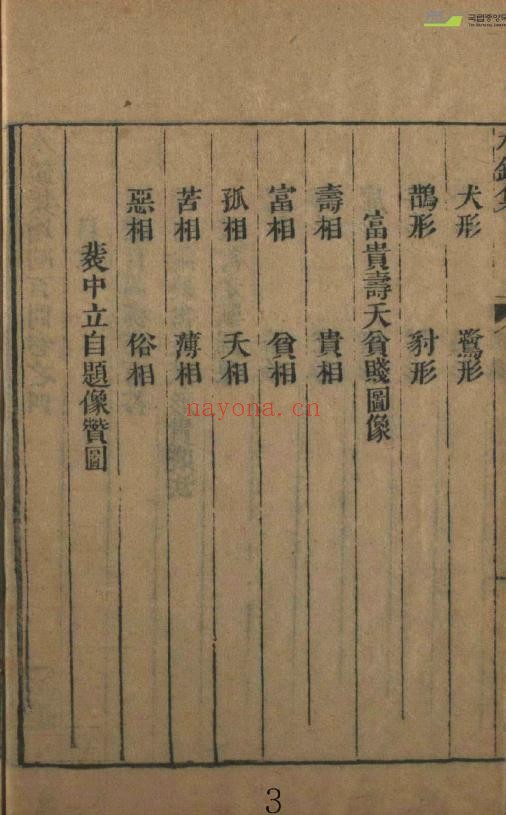 국립중앙도
犬形 鷺形
鵲形 豺形
富貴壽夭貧賤圖像
壽相 貴相
富相 貧相
孤相 夭相
苦相 薄相
惡相 俗相
裴中立自題像贊圖
nayona.cn
3